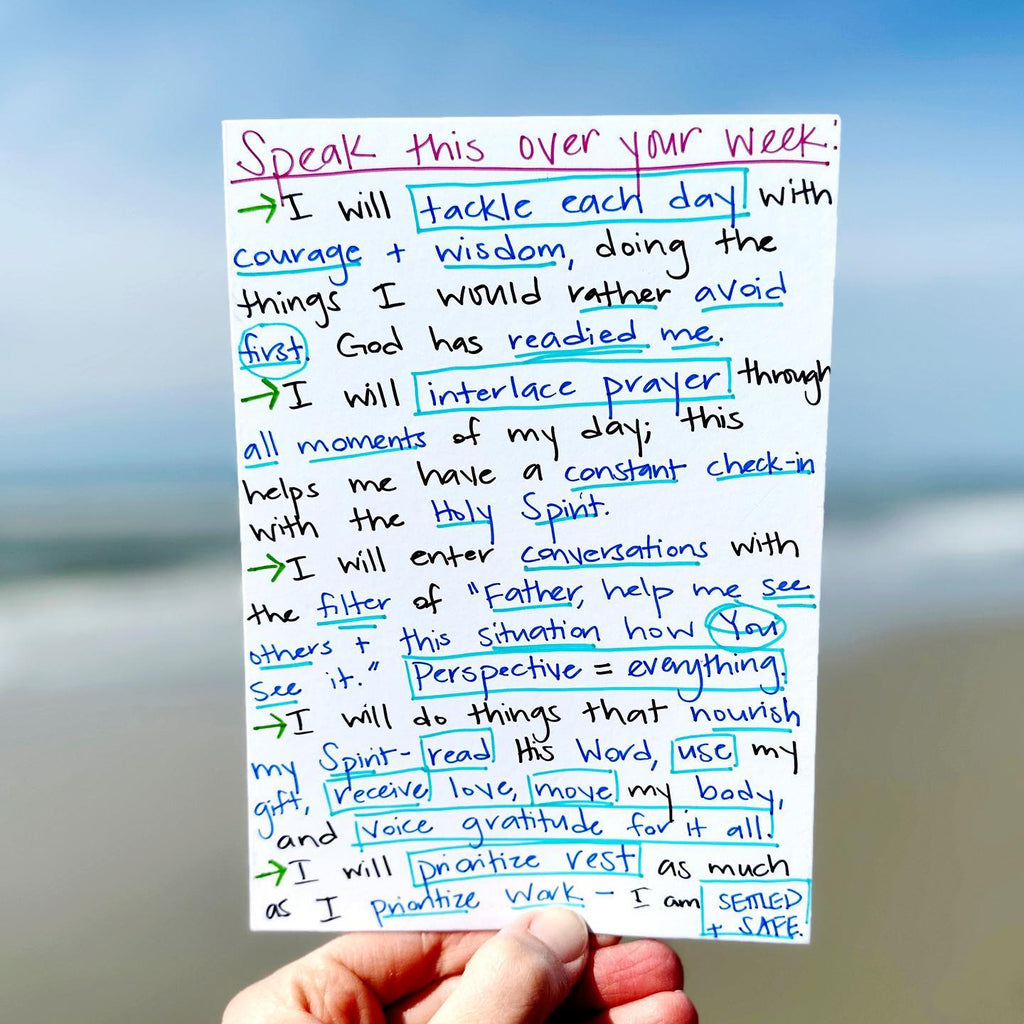 Speak this over your week:
→I will tackle each day with
courage + wisdom, doing the
things I would rather avoid
first. God has readied me.
→I will interlace prayer through
all moments of my day; this
helps me have a constant check-in
with the Holy Spirit.
→I will enter conversations with
the filter of "Father, help me see
others + this situation how You
see it." Perspective = everything.
→I will do things that nourish
my Spirit- read His Word, use my
gift, receive love, move my body,
and voice gratitude for it all!
→I will prioritize rest as much
as I prioritize work - I am SETTLED
+ SAFE.